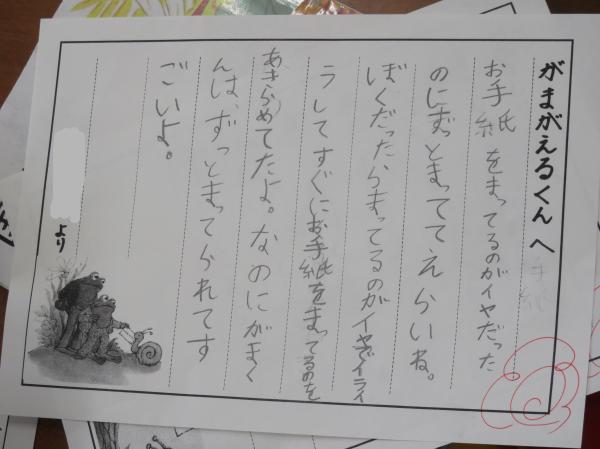 がまがえるくんへ
お手紙をまってるのがイヤだった
のにずっとまっててえらいね。
ぼくだったらまってるのがイヤでイライ
ラしてすぐにお手紙をまってるのを
あきらめてたよ。なのにがまく
んは、ずっとまってられてす
ごいよ。
より